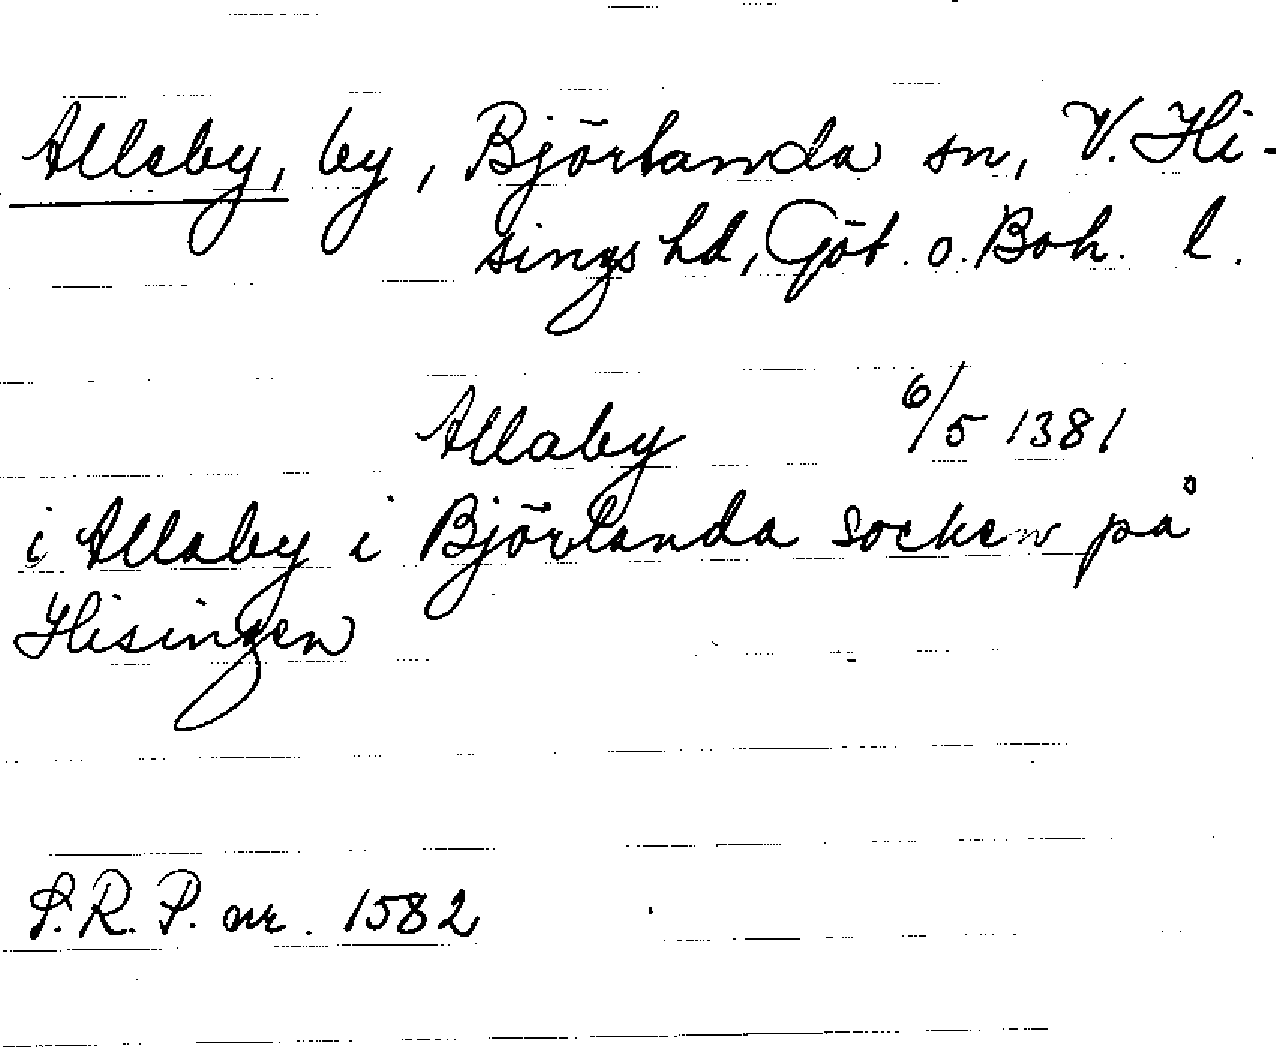 Allsby, by, Björlanda sn, V. Hi-
sings hd, Göt. o. Boh. l.
Allaby 6/5 1381
i Allaby i Björlanda socken på
Hisingen
S.R.P. nr. 1582